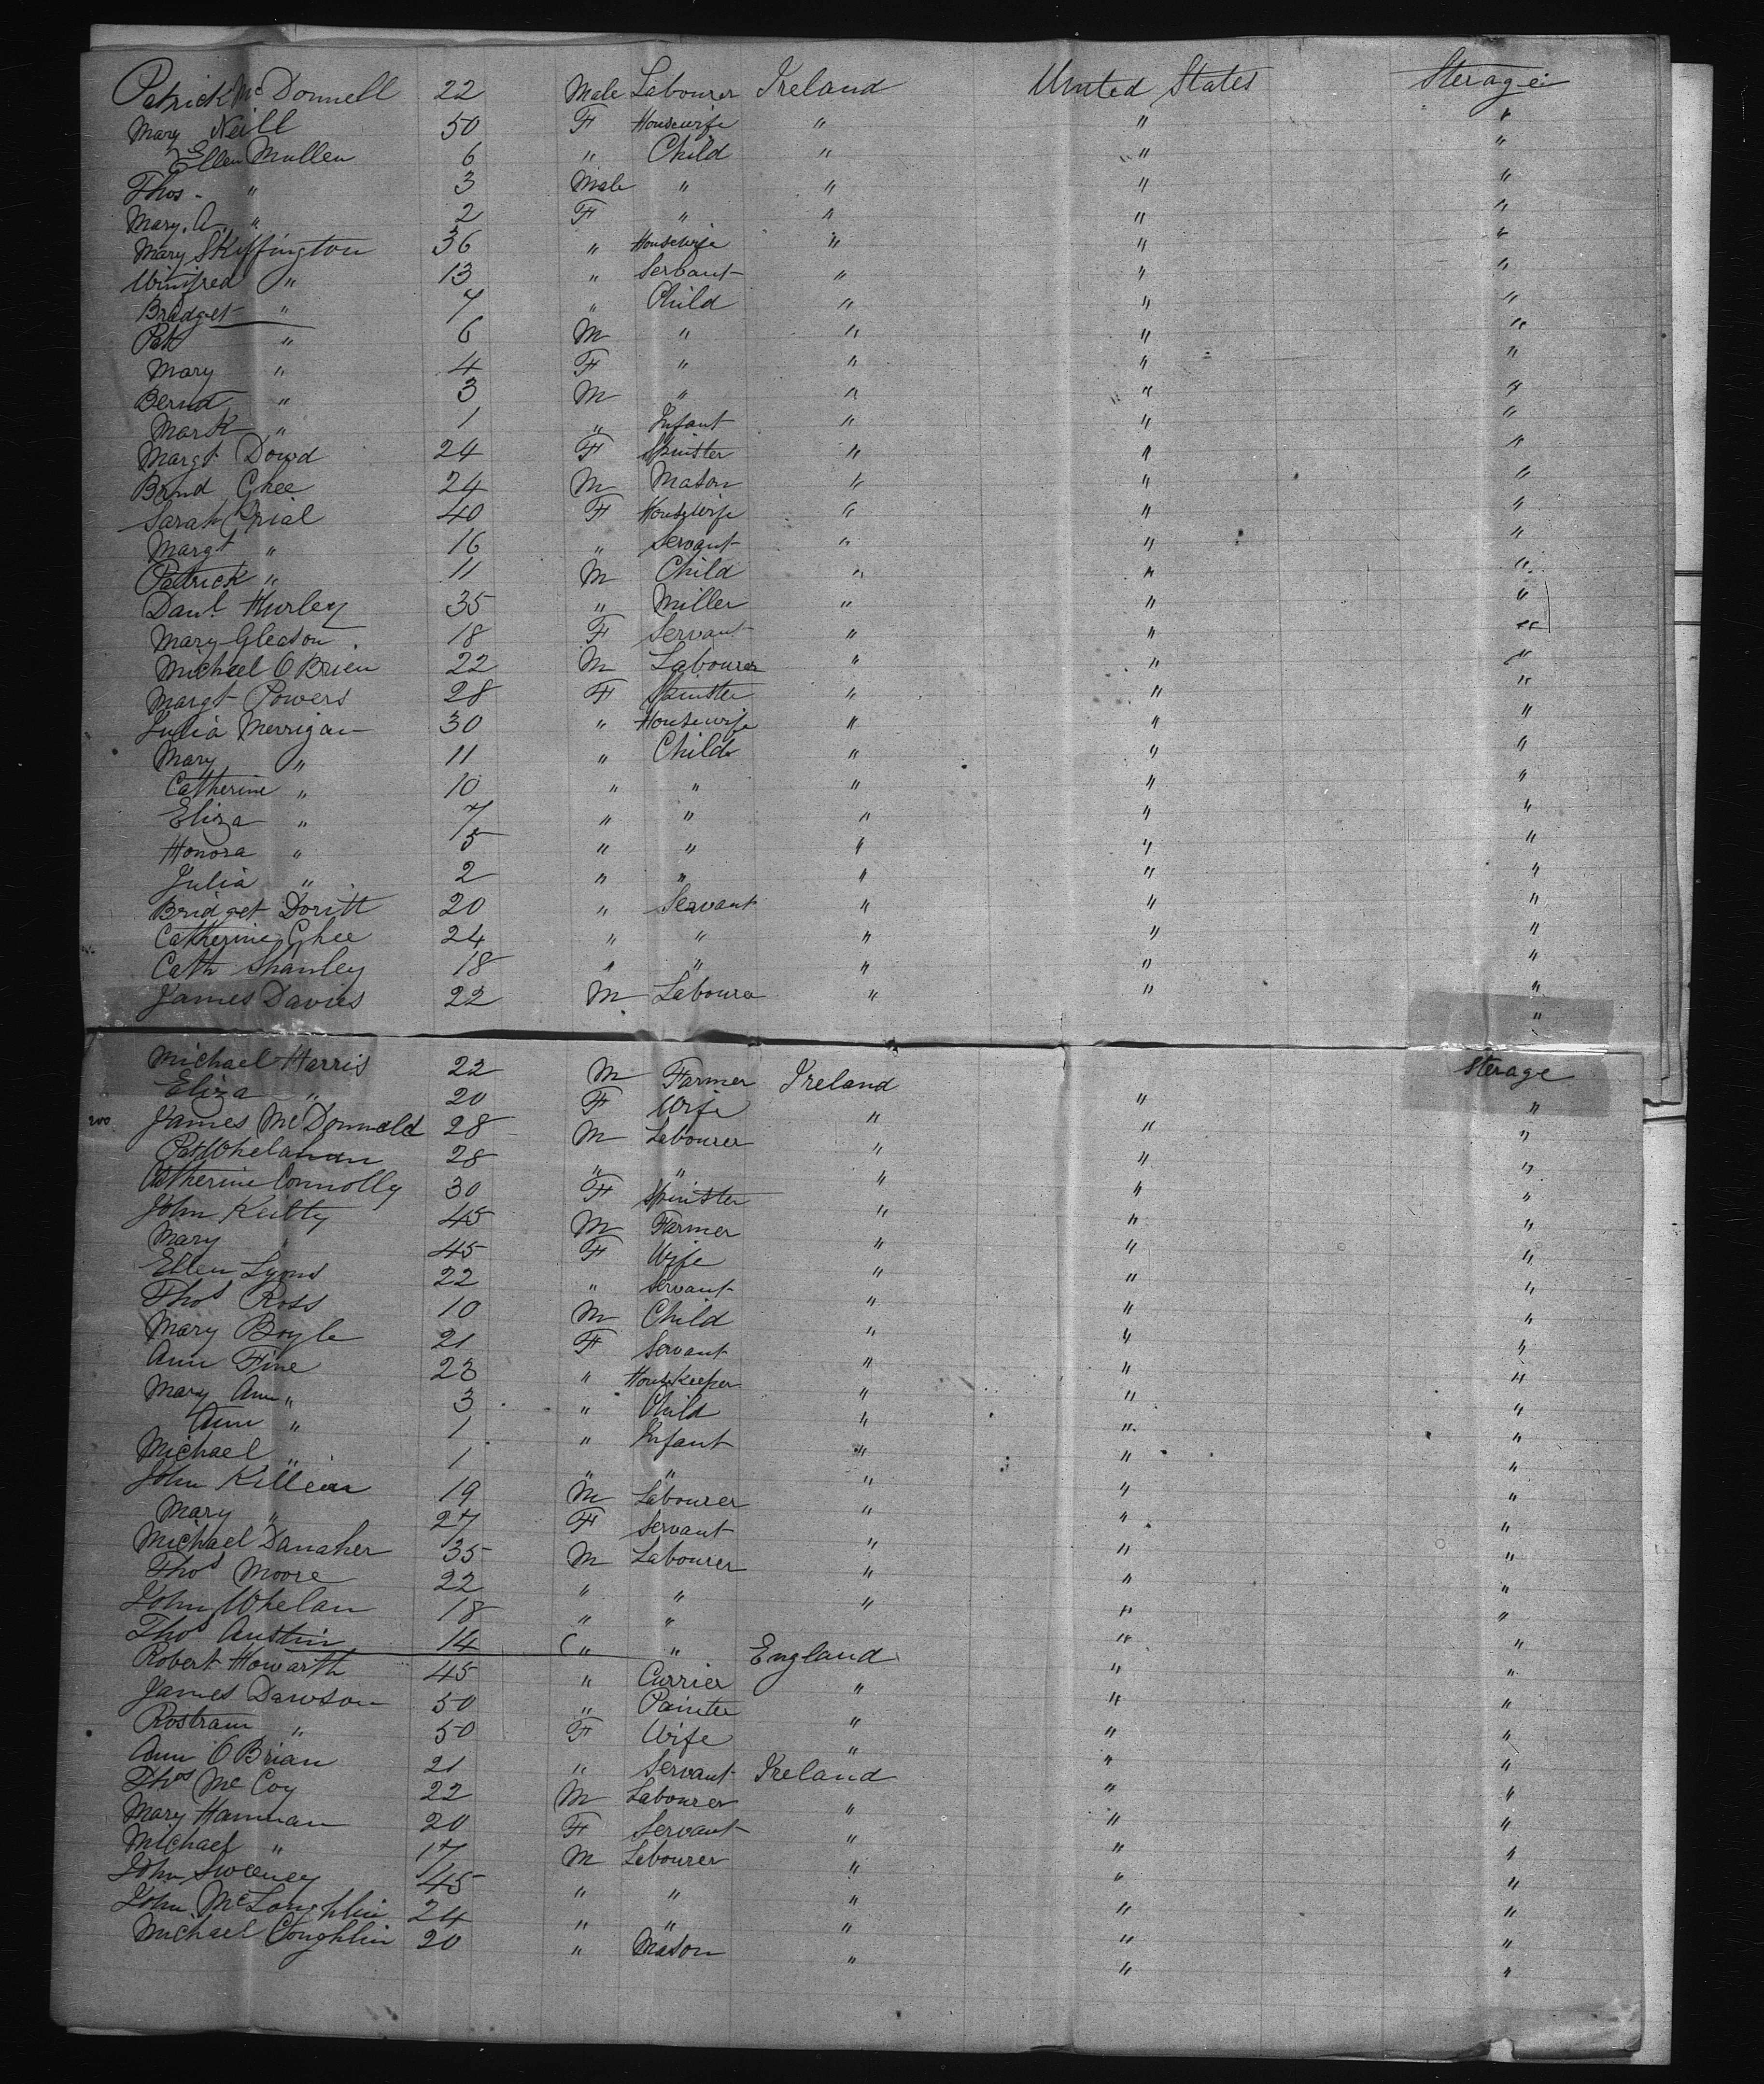 Patrick McDonnell 22 Male Labourer Ireland United States Sterage
Mary Neill 50 F Housewife " " "
Ellen Mullen 6 " Child " " "
Thos. " 3 Male " " " "
Mary. A. " 2 F " " " "
Mary Skiffington 36 " Housewife " " "
Winifred " 13 " Servant " " "
Bridget " 7 " Child " " "
Pat " 6 M " " " "
Mary " 4 F " " " "
Bernd " 3 M " " " "
Mark " 1 " Infant " " "
Margt Dowd 24 F Spinster " " "
Bernd Ghee 24 M Mason " " "
Sarah Prial 40 F Housewife " " "
Margt " 16 " Servant " " "
Patrick " 11 M Child " " "
Danl. Hurley 35 " Miller " " "
Mary Gleason 18 F Servant " " "
Michael O Brien 22 M Labourer " " "
Margt Powers 28 F Spinster " " "
Julia Merrigan 30 " Housewife " " "
Mary " 11 " Child " " "
Catherine " 10 " " " " "
Eliza " 7 " " " " "
Honora " 5 " " " " "
Julia " 2 " " " " "
Bridget Doritt 20 " Servant " " "
Catherine Ghee 24 " " " " "
Cath Shanley 18 " " " " "
James Davies 22 M Laboura " " "
"
Michael Harris 22 M Farmer Ireland Sterage
Eliza " 20 F Wife " " "
200 James McDonnald 28 M Labourer " " "
Pat Whelan 28 " " " " "
Catherine Connolly 30 F Spinster " " "
John Keilty 45 M Farmer " " "
Mary " 45 F Wife " " "
Ellen Lyons 22 " Servant " " "
Thos Ross 10 M Child " " "
Mary Boyle 21 F Servant " " "
Ann Fine 23 " Housekeeper " " "
Mary Ann " 3 " Child " " "
Ann " 1 " Infant " " "
Michael " 1 " " " " "
John Killeen 19 M Labourer " " "
Mary " 27 F Servant " " "
Michael Danaher 35 M Labourer " " "
Thos Moore 22 " " " " "
John Whelan 18 " " " "
Thos Austin 14 " " England " "
Robert Howarth 45 " Currier " " "
James Dawson 50 " Painter " " "
Rostram " 50 F Wife " " "
Ann O Brian 21 " Servant Ireland " "
Thos McCoy 22 M Labourer " " "
Mary Hannan 20 F Servant " " "
Michael " 17 M Labourer " " "
John Sweeney 45 " " " " "
John McLoughlin 24 " " " " "
Michael Coughlin 20 " Mason " " "